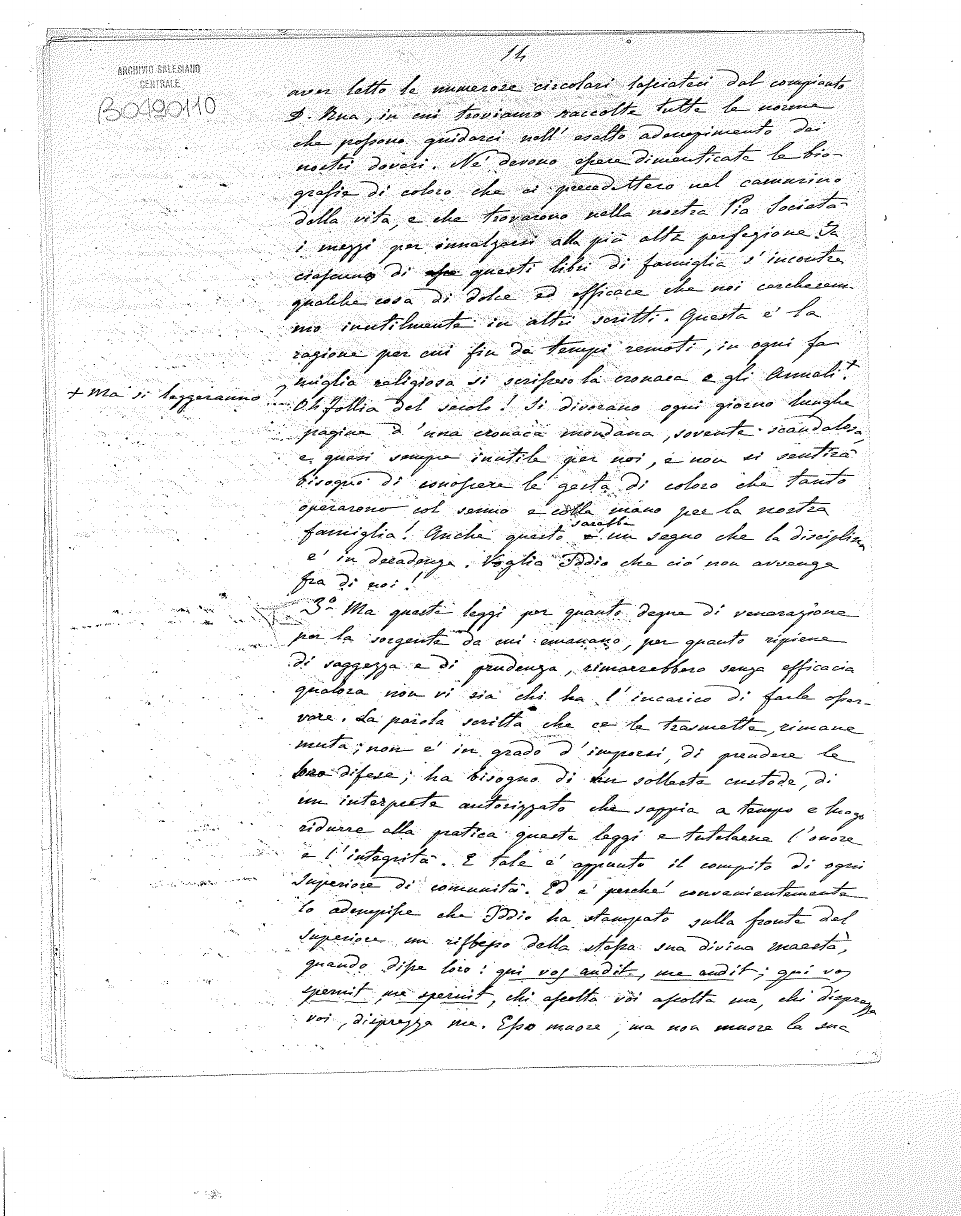 14
ARCHIVIO SALESIANO
CENTRALE
B0490110
aver letto le numerose circolari lasciateci dal compianto
D. Rua, in cui troviamo raccolte tutte le norme
che possono guidarci nell' esatto adempimento dei
nostri doveri. Nè devono essere dimenticate le bio-
grafie di coloro che ci precedettero nel cammino
della vita, e che trovarono nella nostra Pia Società
i mezzi per innalzarsi alla più alta perfezione. In
ciascuno di questi libri di famiglia s' incontra
qualche cosa di dolce ed efficace che noi cercherem-
mo inutilmente in altri scritti. Questa è la
ragione per cui fin da tempi remoti, in ogni fa-
miglia religiosa si scrissero la cronaca e gli Annali.+
+ Ma si leggeranno?
Oh follia del secolo! Si divorano ogni giorno lunghe
pagine d' una cronaca mondana, sovente scandalosa
e quasi sempre inutile per noi, e non si sentirà
bisogno di conoscere le gesta di coloro che tanto
operarono col senno e colla mano per la nostra
sarebbe
famiglia! Anche questo è un segno che la disciplina
è in decadenza. Voglia Iddio che ciò non avvenga
fra di noi!
3º Ma queste leggi per quanto degne di venerazione
per la sorgente da cui emanano, per quanto ripiene
di saggezza e di prudenza, rimarrebbero senza efficacia
qualora non vi sia chi ha l' incarico di farle osser-
vare. La parola scritta che ce le trasmette, rimane
muta; non è in grado d' imporsi, di prendere le
loro difese; ha bisogno di un sollerte custode, di
un interprete autorizzato che sappia a tempo e luogo
ridurre alla pratica queste leggi e tutelarne l' onore
e l' integrità. E tale è appunto il compito di ogni
Superiore di comunità. Ed è perchè convenientemente
lo adempisse che Iddio ha stampato sulla fronte del
Superiore un riflesso della stessa sua divina maestà,
quando disse loro: qui vos audit, me audit; qui vos
spernit me spernit, chi ascolta voi ascolta me, chi disprezza
voi, disprezza me. Esso muore, ma non muore la sua